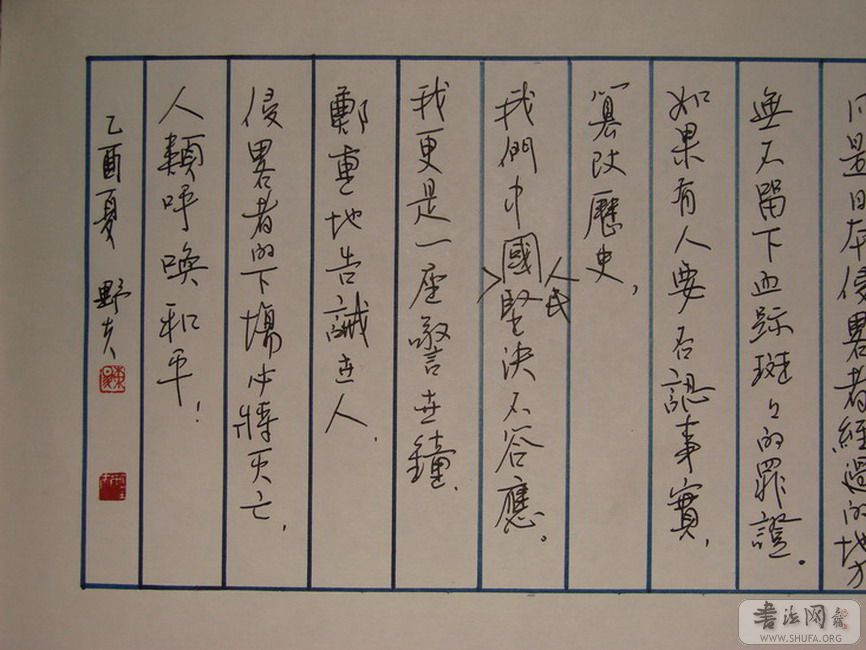 只是日本侵畧者經過的地方
無不留下血跡斑々的罪證。
如果有人要否認事實，
篡改歷史，
我們中國人民堅決不答應。
我更是一座警世鐘，
鄭重地告誡世人，
侵畧者的下場必將灭亡，
人類呼喚和平！
乙酉夏 野夫
书法网
WWW.SHUFA.ORG